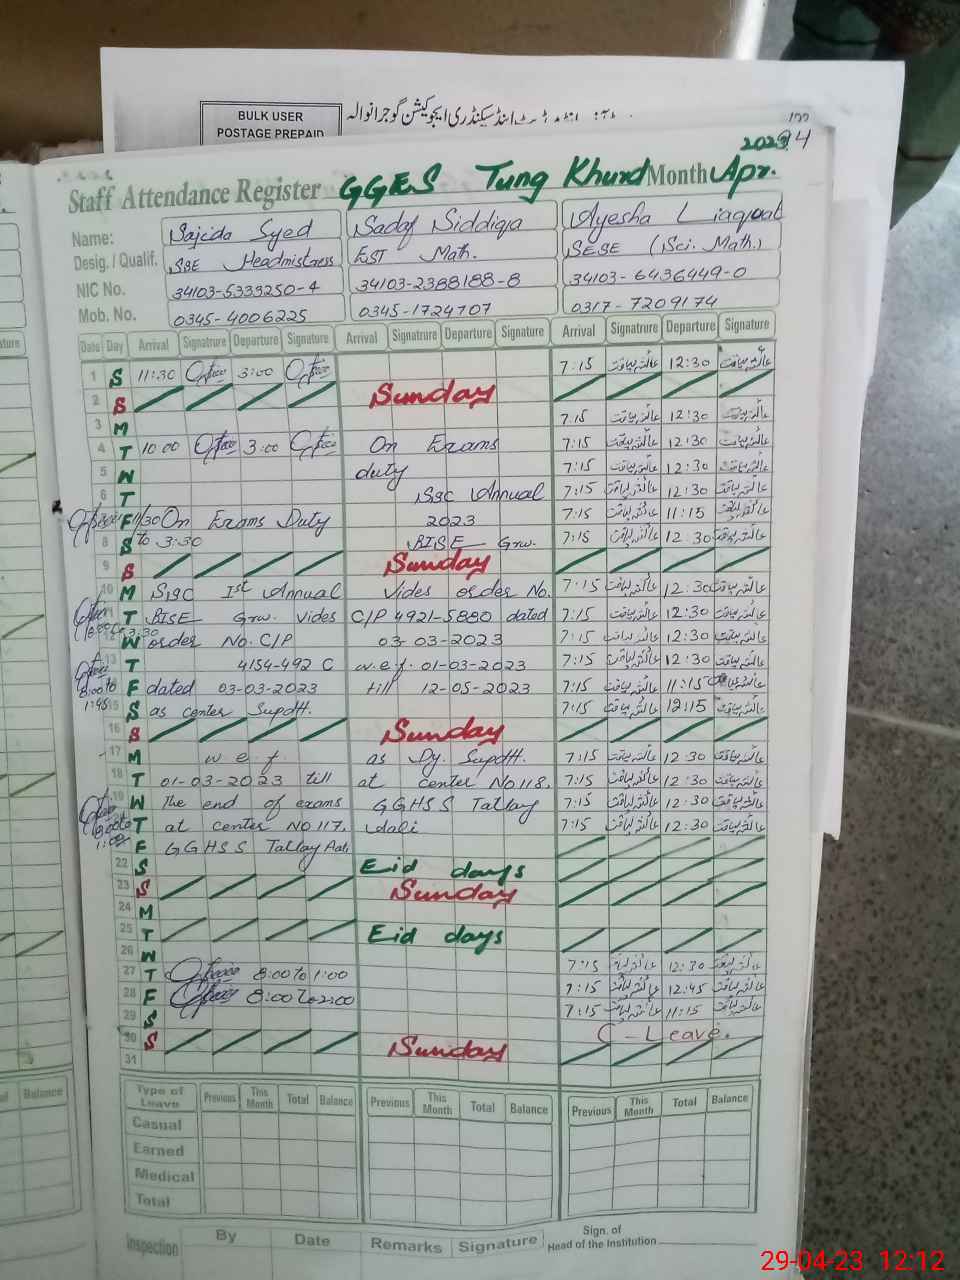 BULK USER
POSTAGE PREPAID
اینڈ سیکنڈری ایجوکیشن گوجرانوالہ
Staff Attendance Register GGES Tung Khurd Month Apr. 2023
Name: Sajida Syed Sadaf Siddiqa Ayesha Liaquat
Desig. / Qualif. SSE Headmistress EST Math. SESE (Sci. Math.)
NIC No. 34103-5333250-4 34103-2388188-8 34103-6436449-0
Mob. No. 0345-4006225 0345-1724707 0317-7209174
Date Day Arrival Signature Departure Signature Arrival Signature Departure Signature Arrival Signature Departure Signature
1 S 11:30 3:00 7:15 عائشہ لیاقت 12:30 عائشہ لیاقت
2 S Sunday
3 M 7:15 عائشہ لیاقت 12:30 عائشہ لیاقت
4 T 10:00 3:00 On Exams 7:15 عائشہ لیاقت 12:30 عائشہ لیاقت
5 W duty 7:15 عائشہ لیاقت 12:30 عائشہ لیاقت
6 T SSC Annual 7:15 عائشہ لیاقت 12:30 عائشہ لیاقت
F 11/30 On Exams Duty 2023 7:15 عائشہ لیاقت 11:15 عائشہ لیاقت
8 S to 3:30 BISE Grw. 7:15 عائشہ لیاقت 12:30 عائشہ لیاقت
9 S Sunday
10 M SSC Ist Annual Vides order No. 7:15 عائشہ لیاقت 12:30 عائشہ لیاقت
11 T BISE Grw. Vides C/P 4921-5880 dated 7:15 عائشہ لیاقت 12:30 عائشہ لیاقت
12 W order No. C/P 03-03-2023 7:15 عائشہ لیاقت 12:30 عائشہ لیاقت
13 T 4154-492 C w.e.f. 01-03-2023 7:15 عائشہ لیاقت 12:30 عائشہ لیاقت
8:00 to F dated 03-03-2023 till 12-05-2023 7:15 عائشہ لیاقت 11:15 عائشہ لیاقت
1:45 15 S as center Supdtt. 7:15 عائشہ لیاقت 12:15 عائشہ لیاقت
16 S Sunday
17 M w.e.f. as Dy. Supdtt. 7:15 عائشہ لیاقت 12:30 عائشہ لیاقت
18 T 01-03-2023 till at center No 118, 7:15 عائشہ لیاقت 12:30 عائشہ لیاقت
19 W The end of exams GGHSS Tatlay 7:15 عائشہ لیاقت 12:30 عائشہ لیاقت
8:00 to T at center NO 117, wali 7:15 عائشہ لیاقت 12:30 عائشہ لیاقت
F GGHSS Tatlay
22 S Eid days
23 S Sunday
24 M
25 T Eid days
26 W
27 T Office 8:00 to 1:00 7:15 عائشہ لیاقت 12:30 عائشہ لیاقت
28 F Office 8:00 to 2:00 7:15 عائشہ لیاقت 12:45 عائشہ لیاقت
29 S 7:15 عائشہ لیاقت 11:15 عائشہ لیاقت
C-Leave.
30 S Sunday
31
Type of Leave Previous This Month Total Balance Previous This Month Total Balance Previous This Month Total Balance
Casual
Earned
Medical
Total
Inspection By Date Remarks Signature Sign. of Head of the Institution
29-04-23 12:12